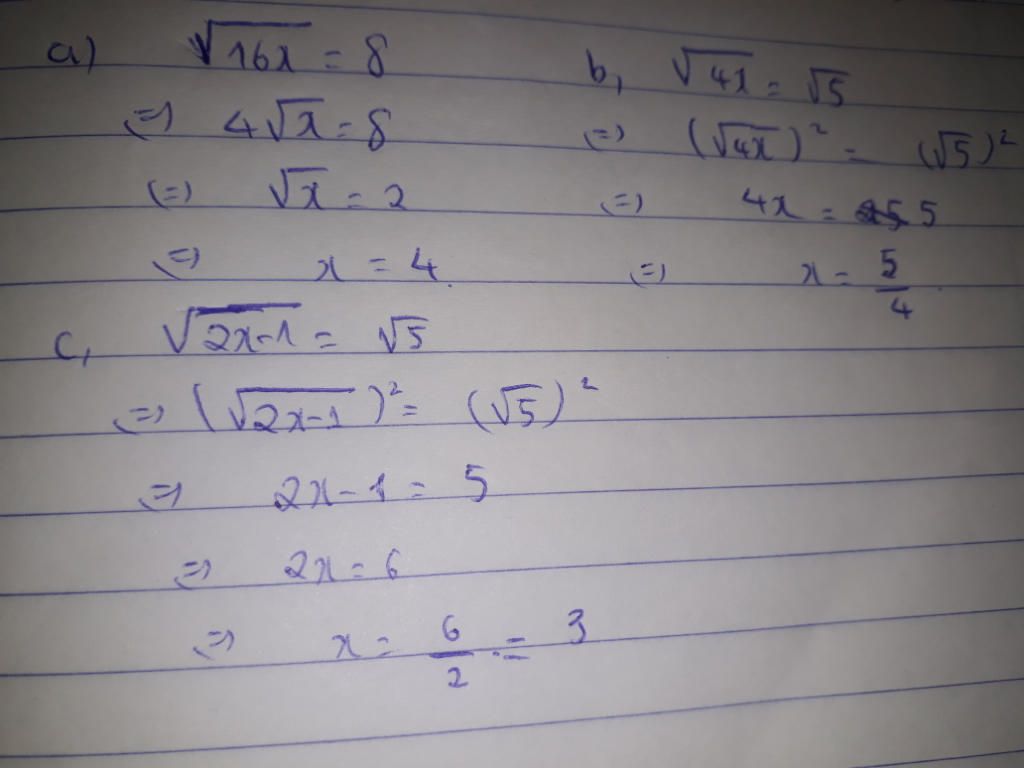 a) √16x = 8
⇔ 4√x = 8
⇔ √x = 2
⇔ x = 4.
b, √4x = √5
⇔ (√4x)² = (√5)²
⇔ 4x = 5
⇔ x = 5/4.
c, √2x-1 = √5
⇔ (√2x-1)² = (√5)²
⇔ 2x-1 = 5
⇔ 2x = 6
⇔ x = 6/2 = 3